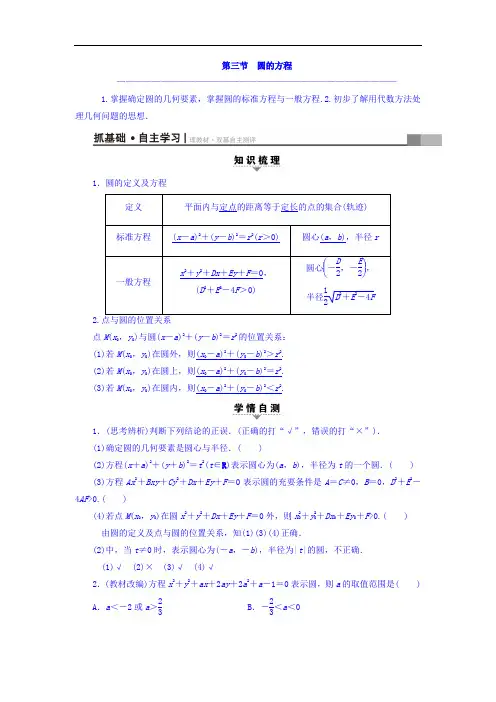 第三节　圆的方程
1.掌握确定圆的几何要素，掌握圆的标准方程与一般方程.2.初步了解用代数方法处
理几何问题的思想.
抓基础·自主学习 | 理教材·双基自主测评
知识梳理
1．圆的定义及方程
定义　平面内与定点的距离等于定长的点的集合(轨迹)
标准方程　(x－a)²＋(y－b)²＝r²(r>0)　圆心(a，b)，半径r
一般方程　x²＋y²＋Dx＋Ey＋F＝0，(D²＋E²－4F>0)　圆心(－D/2，－E/2)，半径1/2√(D²＋E²－4F)
2.点与圆的位置关系
点M(x₀，y₀)与圆(x－a)²＋(y－b)²＝r²的位置关系：
(1)若M(x₀，y₀)在圆外，则(x₀－a)²＋(y₀－b)²＞r².
(2)若M(x₀，y₀)在圆上，则(x₀－a)²＋(y₀－b)²＝r².
(3)若M(x₀，y₀)在圆内，则(x₀－a)²＋(y₀－b)²＜r².
学情自测
1．(思考辨析)判断下列结论的正误．(正确的打“√”，错误的打“×”)．
(1)确定圆的几何要素是圆心与半径．(　　)
(2)方程(x＋a)²＋(y＋b)²＝t²(t∈R)表示圆心为(a，b)，半径为t的一个圆．(　　)
(3)方程Ax²＋Bxy＋Cy²＋Dx＋Ey＋F＝0表示圆的充要条件是A＝C≠0，B＝0，D²＋E²－
4AF>0.(　　)
(4)若点M(x₀，y₀)在圆x²＋y²＋Dx＋Ey＋F＝0外，则x₀²＋y₀²＋Dx₀＋Ey₀＋F>0.(　　)
由圆的定义及点与圆的位置关系，知(1)(3)(4)正确．
(2)中，当t≠0时，表示圆心为(－a，－b)，半径为|t|的圆，不正确．
(1)√　(2)×　(3)√　(4)√
2．(教材改编)方程x²＋y²＋ax＋2ay＋2a²＋a－1＝0表示圆，则a的取值范围是(　　)
A．a＜－2或a＞2/3　B．－2/3＜a＜0